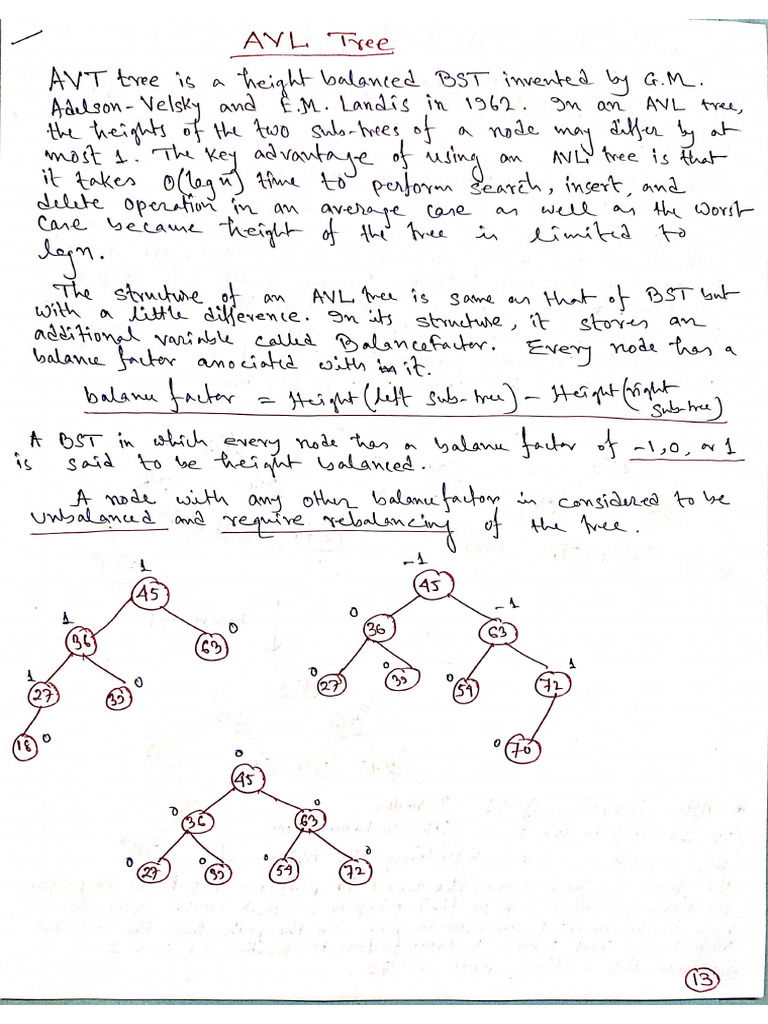 AVL Tree
AVT tree is a height balanced BST invented by G.M.
Adelson-Velsky and E.M. Landis in 1962. In an AVL tree,
the heights of the two sub-trees of a node may differ by at
most 1. The key advantage of using an AVL tree is that
it takes O(logn) time to perform search, insert, and
delete operation in an average case as well as the worst
case because height of the tree is limited to
logn.
The structure of an AVL tree is same as that of BST but
with a little difference. In its structure, it stores an
additional variable called BalanceFactor. Every node has a
balance factor associated with it.
balance factor = Height(left sub-tree) - Height(right
sub-tree)
A BST in which every node has a balance factor of -1, 0, or 1
is said to be height balanced.
A node with any other balance factor is considered to be
unbalanced and require rebalancing of the tree.
1 -1
45 45
1 0 0 -1
36 63 36 63
1 0 0 0 0 1
27 39 27 39 54 72
18 0 0 70
0
45
0 0
36 63
0 0 0 0
27 39 54 72
13